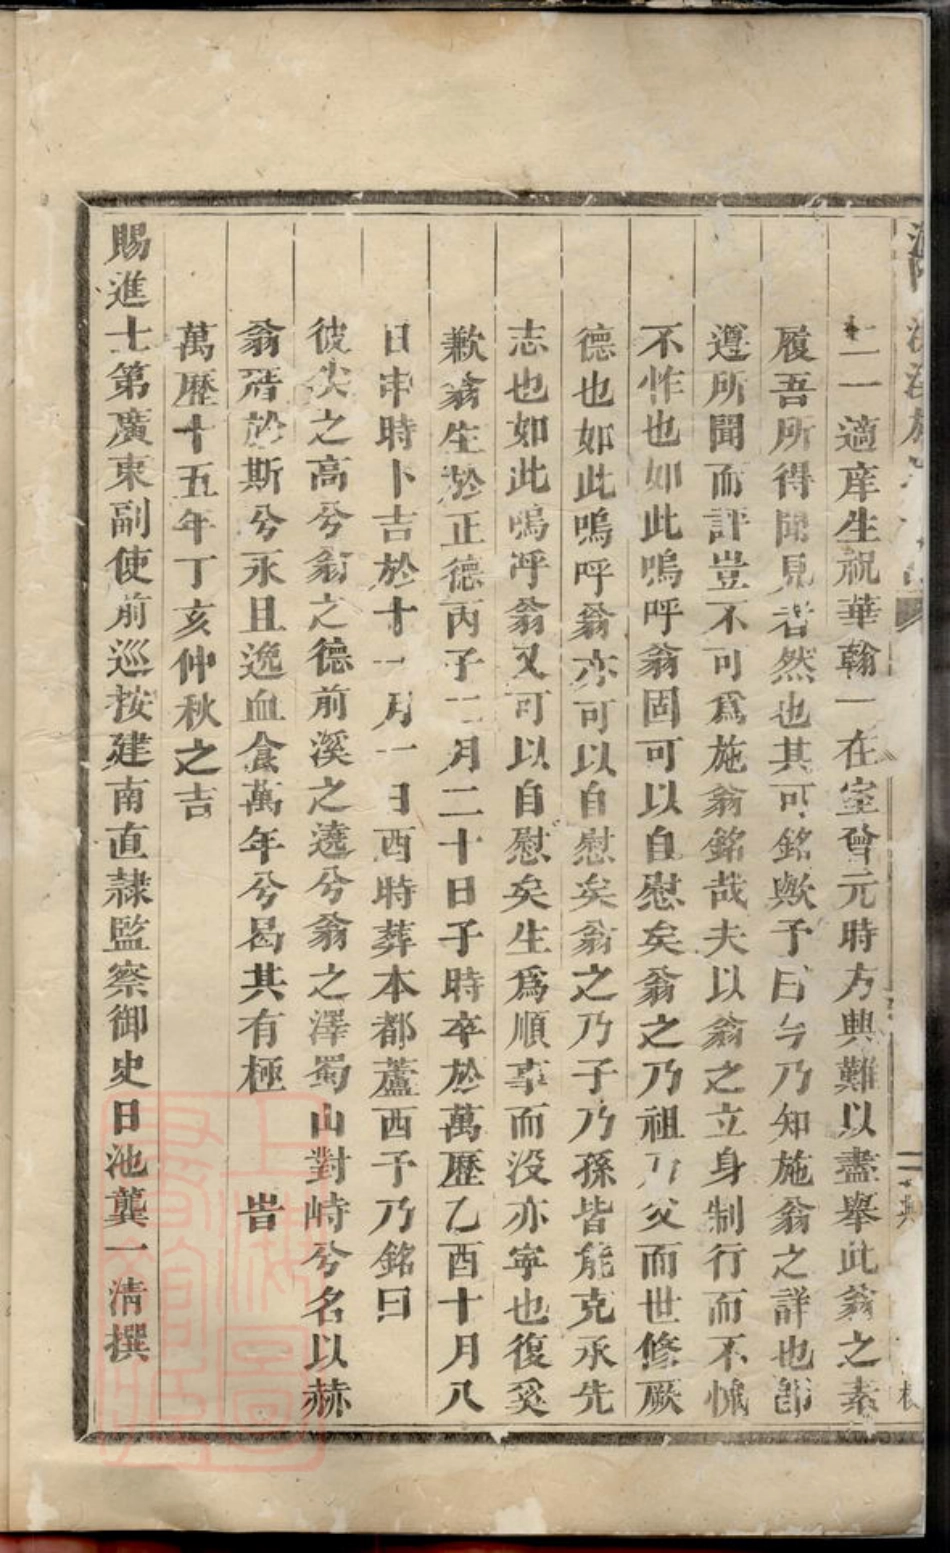 二一適庠生祝華翰一在室曾元時方興難以盡舉此翁之素
履吾所得聞見者然也其可銘歟予曰今乃知施翁之詳也即
遵所聞而評豈不可爲施翁銘哉夫以翁之立身制行而不愧
不怍也如此嗚呼翁固可以自慰矣翁之乃祖乃父而世修厥
德也如此嗚呼翁亦可以自慰矣翁之乃子乃孫皆能克承先
志也如此嗚呼翁又可以自慰矣生爲順事而没亦寧也復奚
歉翁生於正德丙子二月二十日子時卒於萬歷乙酉十月八
日申時卜吉於十一月一日酉時葬本都蘆西予乃銘曰
彼尖之高兮翁之德前溪之遶兮翁之澤蜀山對峙兮名以赫
翁厝於斯兮永且逸血食萬年兮曷其有極　　旹
萬歷十五年丁亥仲秋之吉
賜進士第廣東副使前巡按建南直隷監察御史日池龔一清撰